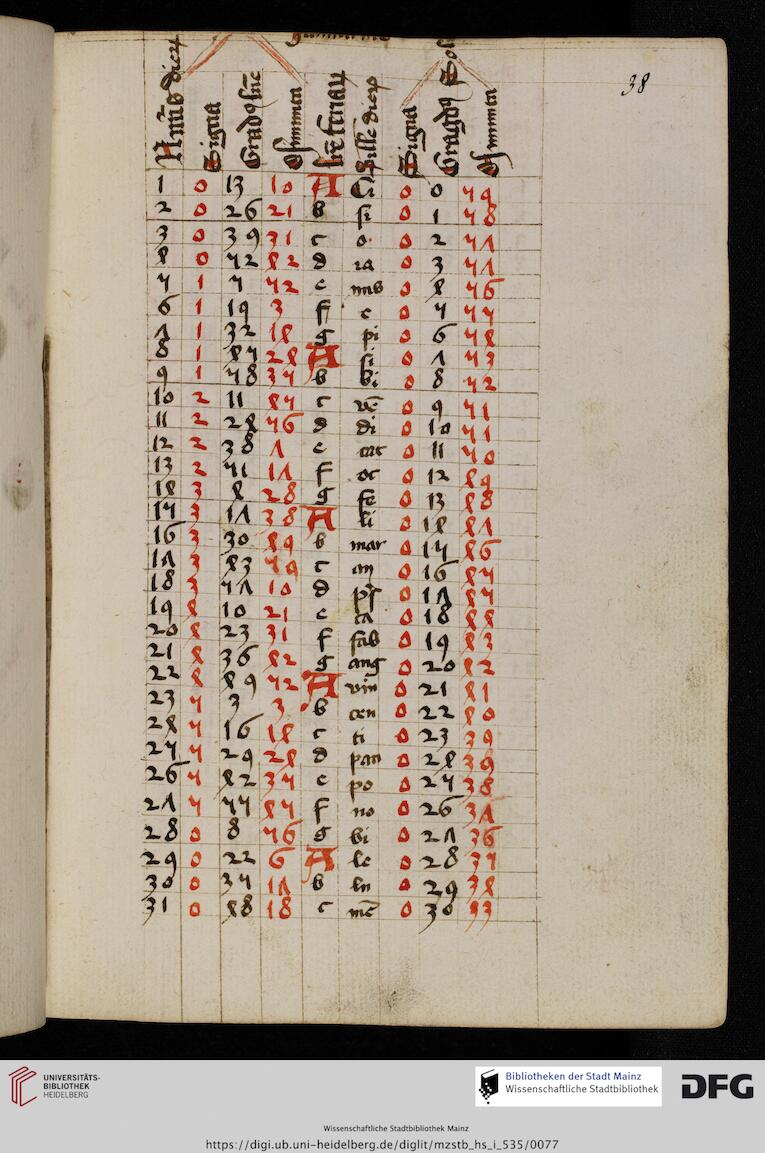 38
Numerus dierum Signa Gradus lune Minuta Littere feriarum Sillabe dierum Signa Gradus Solis Minuta
1 0 13 10 A Ci 0 0 59
2 0 26 21 b si 0 1 58
3 0 39 31 c o 0 2 57
4 0 52 42 d ia 0 3 57
5 1 5 52 e nus 0 4 56
6 1 19 3 f e 0 5 55
7 1 32 14 g pi 0 6 54
8 1 45 24 A si 0 7 53
9 1 58 35 b bi 0 8 52
10 2 11 45 c vē 0 9 51
11 2 24 56 d di 0 10 51
12 2 38 7 e mc 0 11 50
13 2 51 17 f oc 0 12 49
14 3 4 28 g fe 0 13 48
15 3 17 38 A li 0 14 47
16 3 30 49 b mar 0 15 46
17 3 43 59 c an 0 16 45
18 3 57 10 d p̄s 0 17 45
19 4 10 21 e ca 0 18 44
20 4 23 31 f fab 0 19 43
21 4 36 42 g ang 0 20 42
22 4 49 52 A vin 0 21 41
23 5 3 3 b cen 0 22 40
24 5 16 14 c ti 0 23 39
25 5 29 24 d pau 0 24 39
26 5 42 35 e po 0 25 38
27 5 55 45 f no 0 26 37
28 0 8 56 g bi 0 27 36
29 0 22 6 A le 0 28 35
30 0 35 17 b lu 0 29 34
31 0 48 18 c mē 0 30 33
UNIVERSITÄTS-
BIBLIOTHEK
HEIDELBERG
Bibliotheken der Stadt Mainz
Wissenschaftliche Stadtbibliothek
DFG
Wissenschaftliche Stadtbibliothek Mainz
https://digi.ub.uni-heidelberg.de/diglit/mzstb_hs_i_535/0077